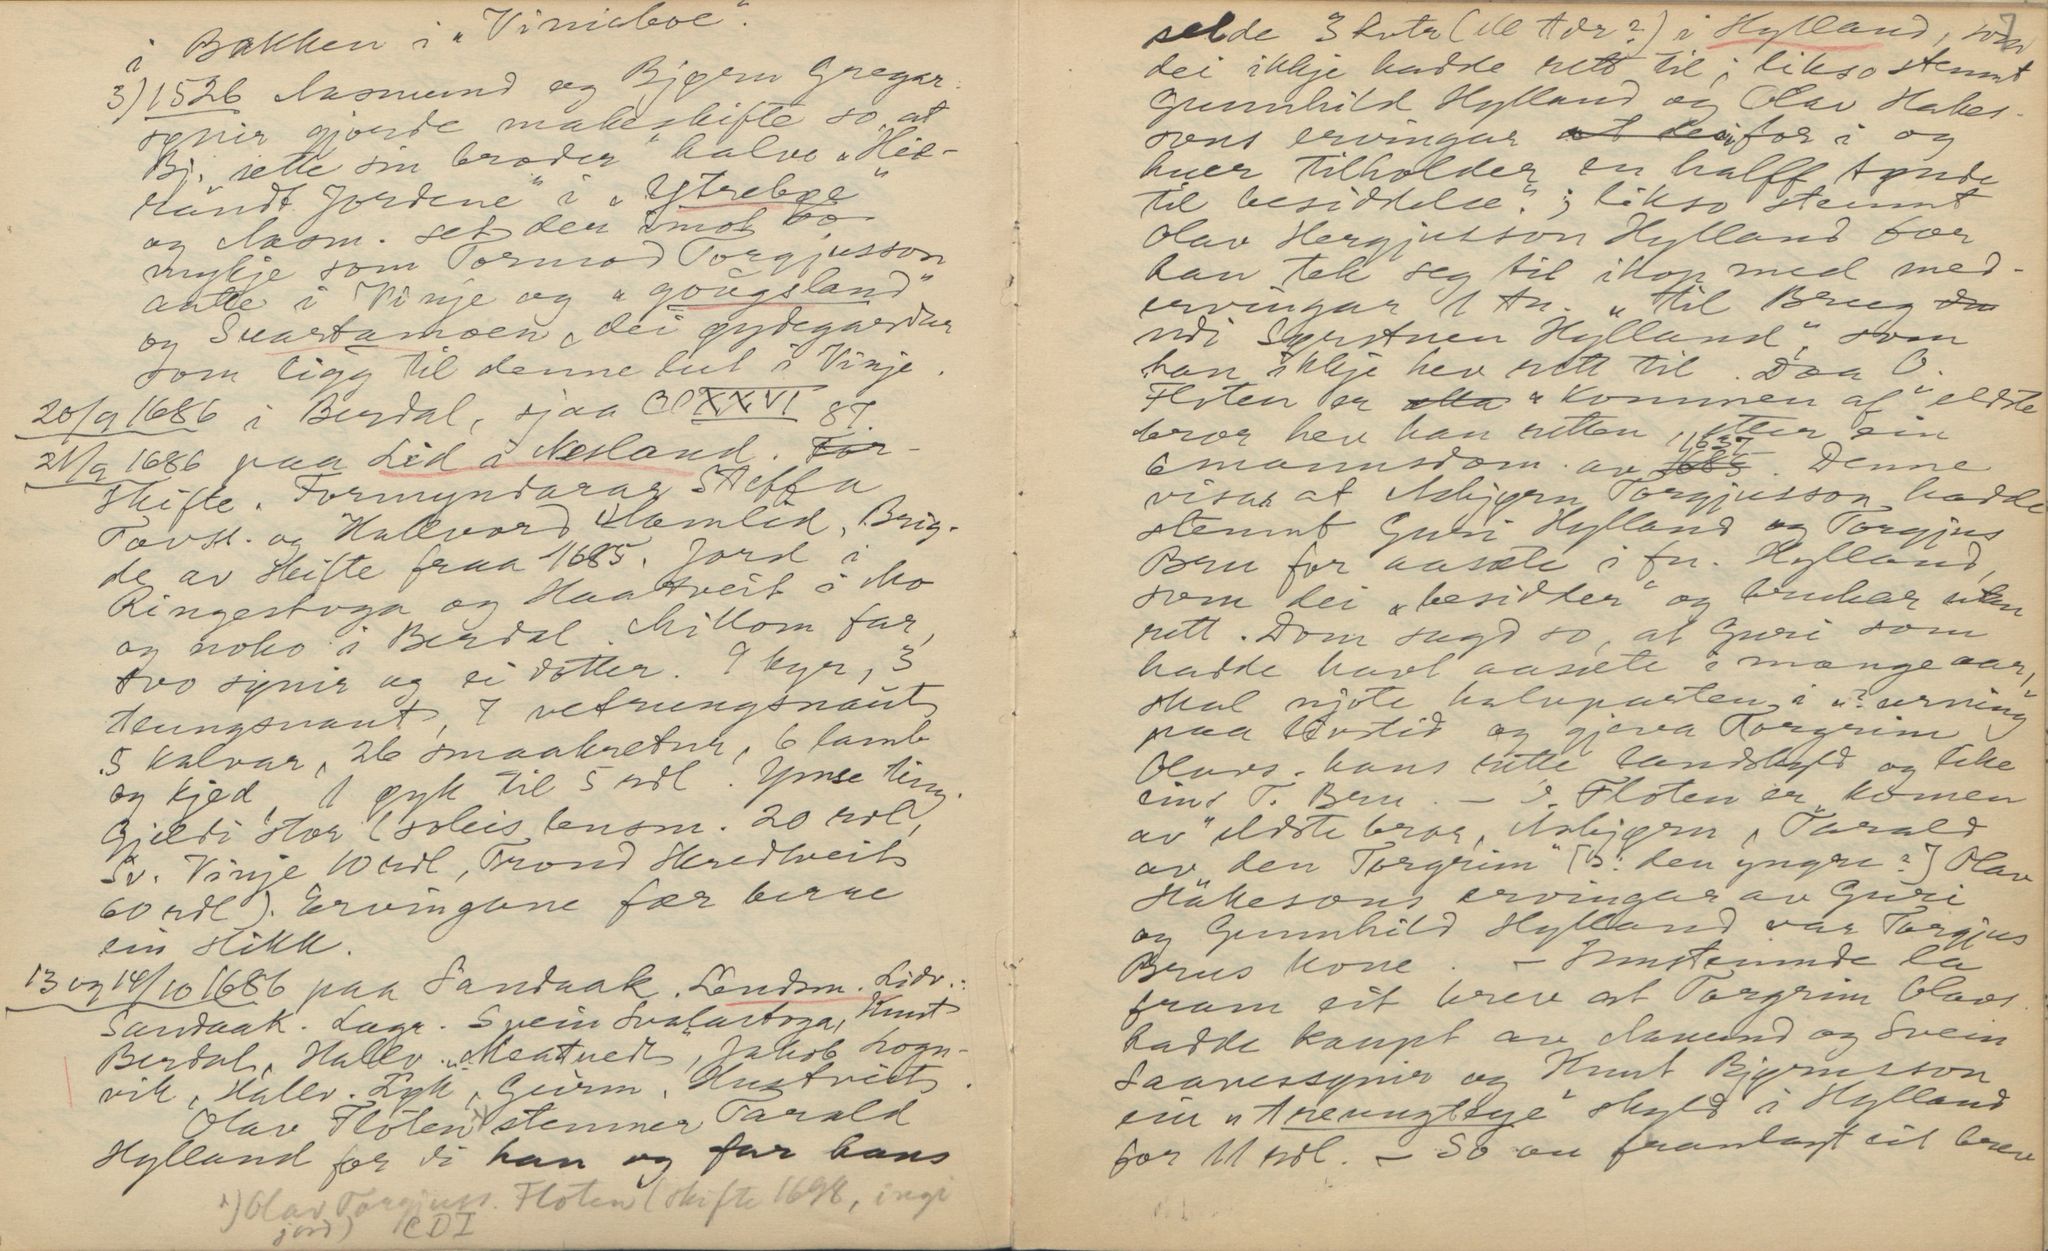 i Bakken i "Viniaboe".
3) 1526 Aasmund og Bjørn Gregar-
synir gjorde makeskifte so "at
Bj. sette sin broder" halve "Hie-
råndt Jordene" i "Ytrebøe"
og Aasm. set der imot so
mykje som Tormod Torgjusson
aatte i Vinje og "gougsland"
og Suartamoen, dei øydegardar
som ligg til denne lut i Vinje.
20/9 1686 i Berdal, sjaa CCXXXVI 87.
21/9 1686 paa Lid i Nesland. For-
skifte. Formyndarar Steffa
Tovsl. og Hallvord Vaamlid, Brig-
de av skifte fraa 1685. Jord i
Ringestoga og Haatveit i Mo
og noko i Berdal. Millom far,
tvo synir og ei dotter. 9 kyr, 3
tungsnaut, 7 vetrungsnaut
5 kalvar, 26 smaakretur, 6 lamb
og kjed, 1 øyk til 5 rdl. Ymse ting.
Gjeldi stor (soleis lensm. 20 rdl,
Sv. Vinje 10 rdl, Trond Heredtveit
60 rdl). Ervingane fær berre
ein slikk.
13 og 14/10 1686 paa Sandaak. Lendsm. Lidv.:
Sandaak. Lagr. Svein Svalastoga, Knut
Berdal, Hallv. "Meatuedt", Jakob Logn-
vik, Hallv. Lyk, Geirm. Hustveit.
Olav Floten *) stemner Tarald
Hylland for di han og far hans
*) Olav Torgjuss. Floten (skifte 1698, ingi
jord) CDI
selde 3 kvtr (ell. tdr?) i Hylland, som
dei ikkje hadde rett til; likso stemnt
Gunnhild Hylland og Olav Hakes-
sons ervingar for i og
huer tilholder en halff tynde
til besiddelse."; likso stemnt
Olav Hergjusson Hylland for
han tek seg til ikop med med-
ervingar 1 tn. "til Brug
udi Sørstuen Hylland", som
han ikkje hev rett til. Daa O.
Floten er "kommen af" eldste
bror hev han retten etter ein
6mannsdom av 1657. Denne
visar at Asbjørn Torgjusson hadde
stemnt Guri Hylland og Torgjus
Bru for aasæte i fn. Hylland,
som dei "besidter" og brukar utan
rett. Dom sagd so, at Guri som
hadde havt aasæte i mange aar,
skal njote halvparten i "?erning"
paa livstid og gjeva Torgrim
Olavs. hans rette landskyld og like
eins T. Bru. — O. Floten er "komen
av" eldste bror, Asbjørn, Tarald
av "den Torgrim" [ɔ: den yngre?] Olav
Håkesons ervingar av Guri
og Gunnhild Hylland var Torgjus
Brus kone. — Innstemnde la
fram eit brev at Torgrim Olavs.
hadde kaupt av Aamund og Svein
Saavessynir og Knut Bjørnsson
ein "treungtsye" skyld i Hylland
for 11 rdl. — So au framlagt eit brev